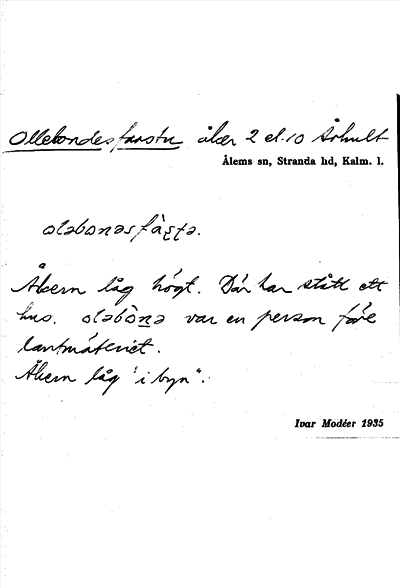 Ollebondesfarstu åker 2 el. 10 Århult
Ålems sn, Stranda hd, Kalm. l.
Åkern låg högt. Där har stått ett
hus. var en person före
lantmäteriet.
Åkern låg "i byn".
Ivar Modéer 1935